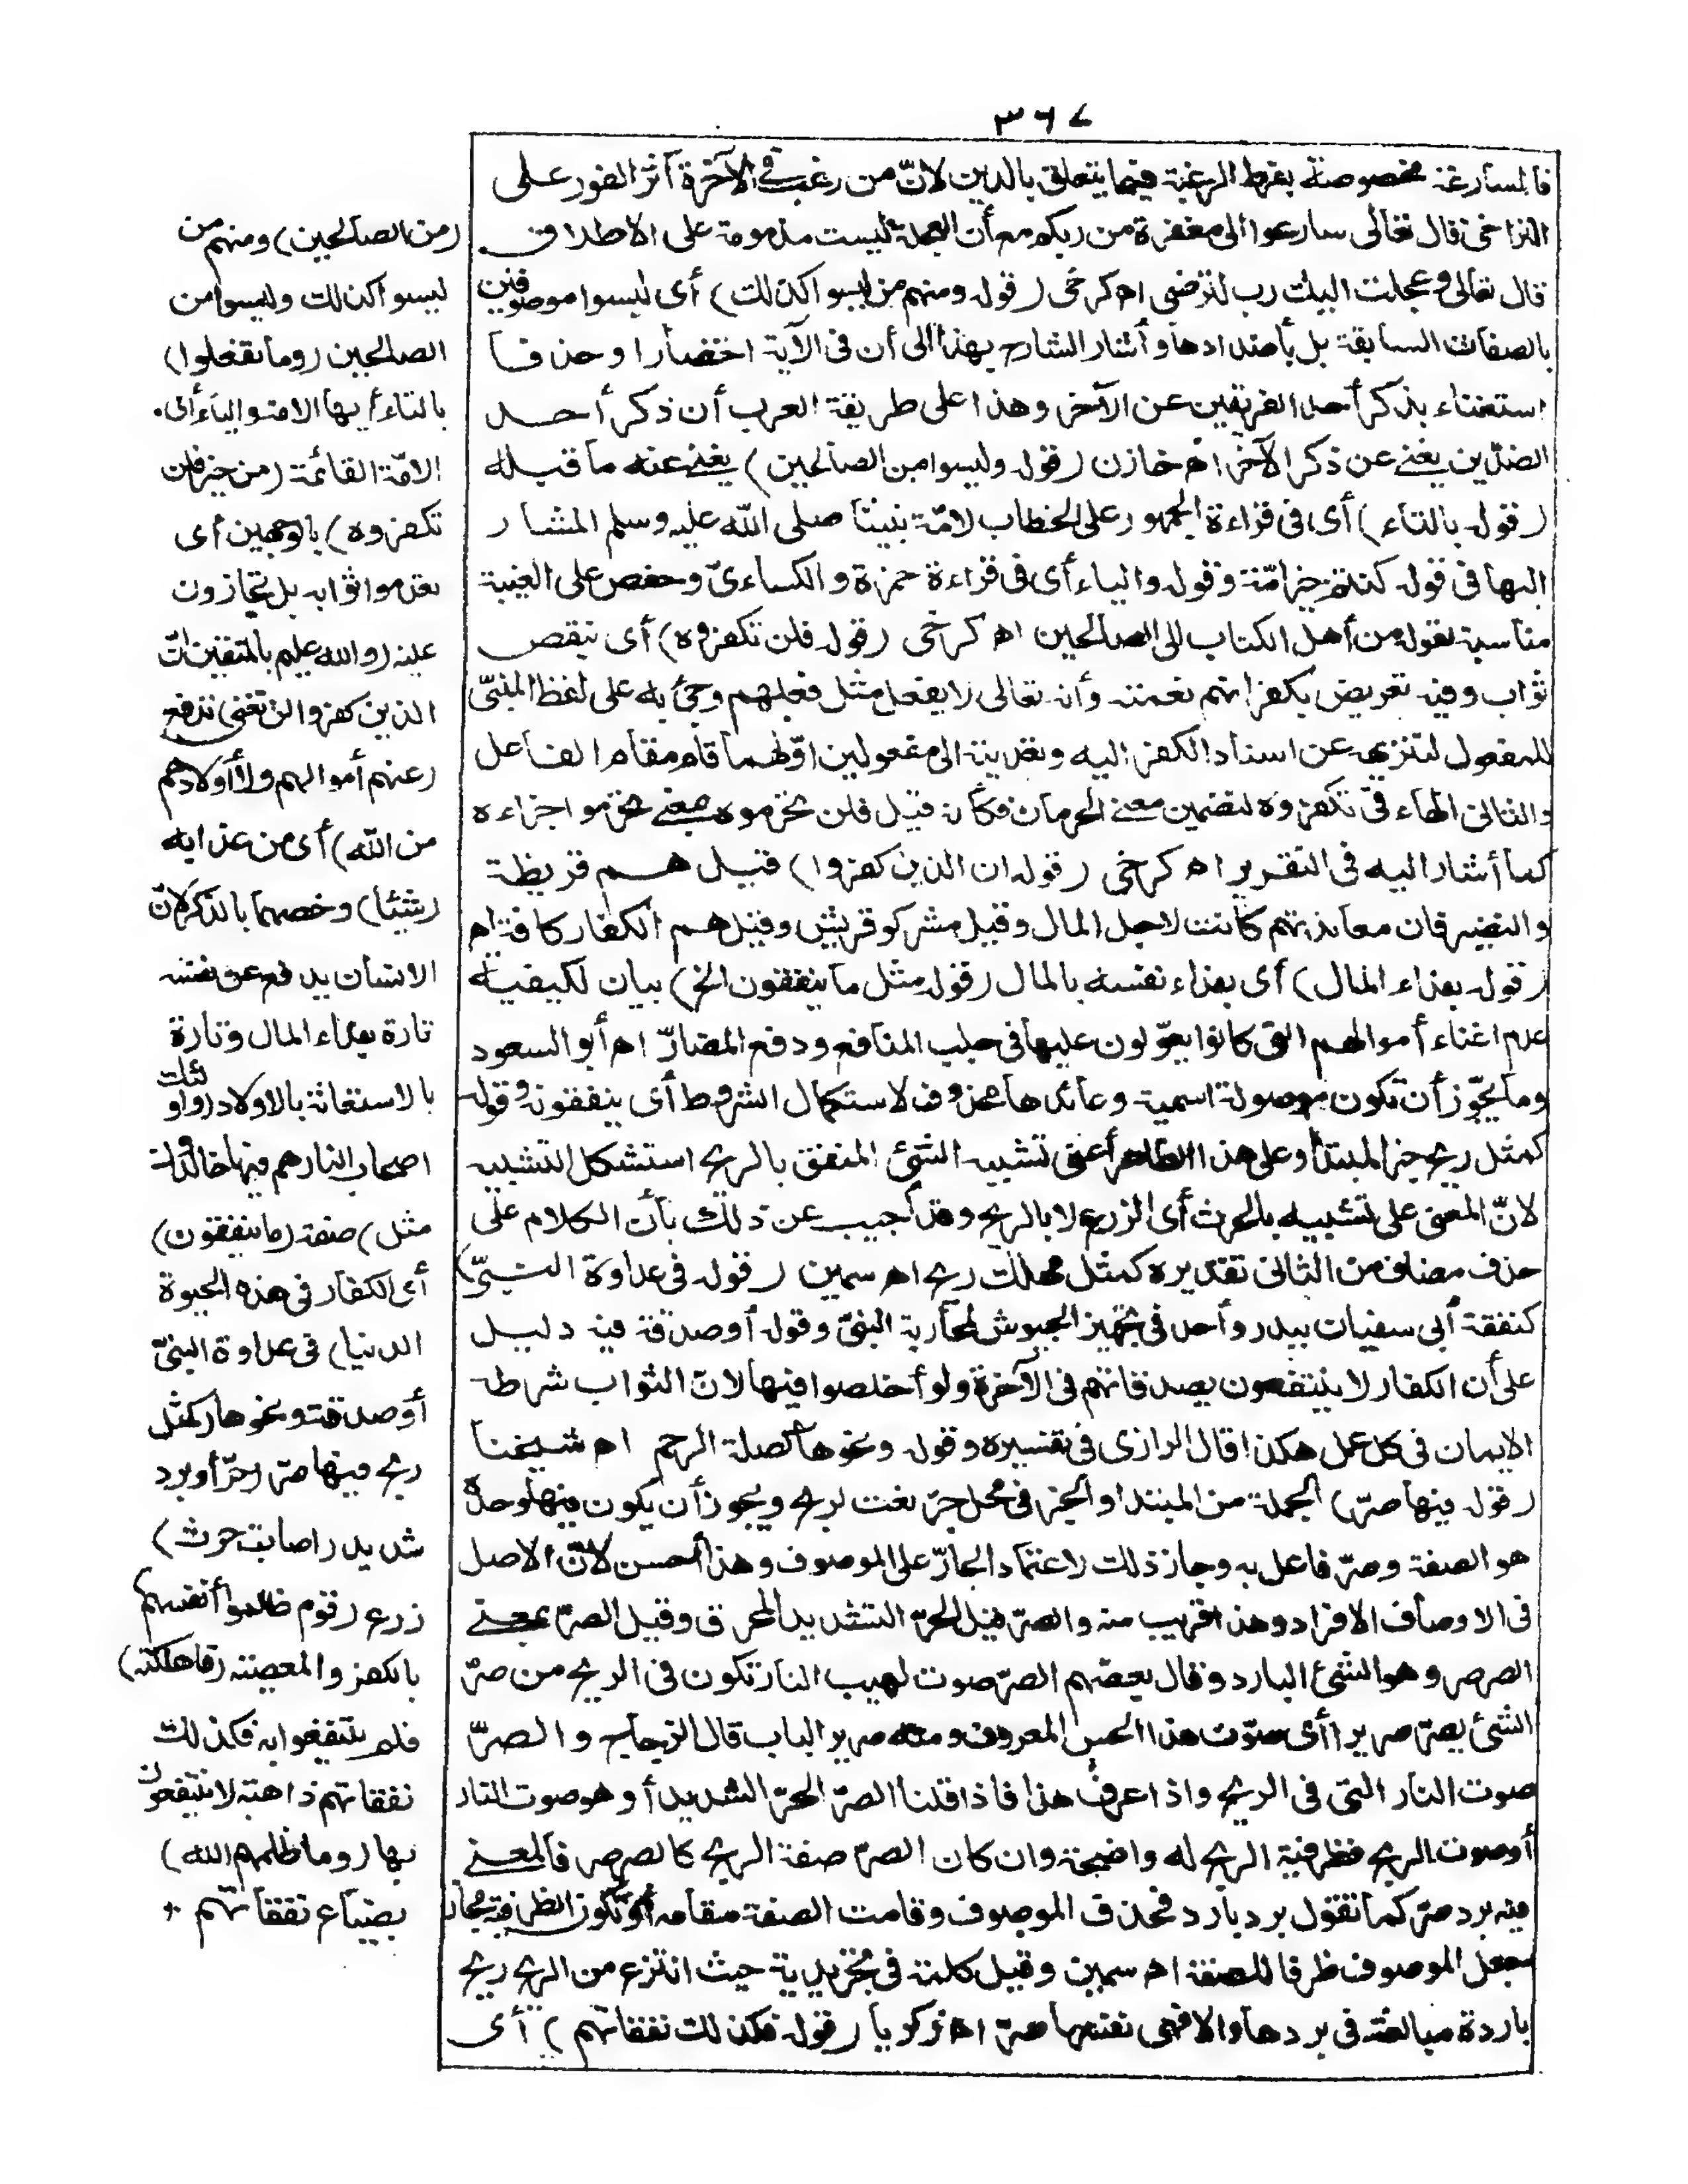 ٣٦٧
فالمسارعة مخصوصة بفرط الرغبة فيما يتعلق بالدين لانّ من رغب في الآخرة آثر الفور على
التراخى قال تعالى سارعوا الى مغفرة من ربكم مع أن العجلة ليست مذمومة على الاطلاق
قال تعالى وعجلت اليك رب لترضى اه كرخى (قوله ومنهم من ليسوا كذلك) أى ليسوا موصوفين
بالصفات السابقة بل بأضدادها وأشار الشارح بهذا الى أن فى الآية اختصارا وحذفا
استغناء بذكر أحد الفريقين عن الآخر وهذا على طريقة العرب أن ذكر أحد
الضدّين يغنى عن ذكر الآخر اه خازن (قوله وليسوا من الصالحين) يغنى عنه ما قبله
(قوله بالتاء) أى فى قراءة الجمهور على الخطاب لامّة نبينا صلى الله عليه وسلم المشار
اليها فى قوله كنتم خير امّة وقوله والياء أى فى قراءة حمزة والكساءىّ وحفص على الغيبة
مناسبة لقوله من أهل الكتاب الى الصالحين اه كرخى (قوله فلن تكفروه) أى ننقص
ثواب وفيه تعريض بكفرانهم نعمته وأنه تعالى لا يفعل مثل فعلهم وجئ به على لفظ المبنىّ
للمفعول لتنزيهه عن اسناد الكفر اليه وتعديته الى مفعولين اوّلهما قام مقام الفاعل
والثانى الهاء فى تكفروه لتضمين معنى الحرمان فكأنه قيل فلن تحرموه بمعنى تحرموا جزاءه
كما أشار اليه فى التقرير اه كرخى (قوله ان الذين كفروا) قيل هم قريظة
والنضير فان معاندتهم كانت لاجل المال وقيل مشركو قريش وقيل هم الكفار كافة اه
(قوله بفداء المال) أى بفداء نفسه بالمال (قوله مثل ما ينفقون الخ) بيان لكيفية
عدم اغناء أموالهم التى كانوا يعوّلون عليها فى جلب المنافع ودفع المضارّ اه أبو السعود
وما يجوّز أن تكون موصولة اسمية وعائدها محذوف لاستكمال الشروط أى ينفقونه وقوله
كمثل ريح خبر المبتدأ وعلى هذا الظاهر أعنى تشبيه الشئ المنفق بالريح استشكل التشبيه
لانّ المعنى على تشبيهه بالحرث أى الزرع لا بالريح وقد أجيب عن ذلك بأن الكلام على
حذف مضاف من الثانى تقديره كمثل مهلك ريح اه سمين (قوله فى عداوة النبىّ)
كنفقة أبى سفيان ببدر وأحد فى تجهيز الجيوش لمحاربة النبىّ وقوله أو صدقة فيه دليل
على أن الكفار لا ينتفعون بصدقاتهم فى الآخرة ولو أخلصوا فيها لانّ الثواب شرطه
الايمان فى كل عمل هكذا قال الرازى فى تفسيره وقوله ونحوها كصلة الرحم اه شيخنا
(قوله فيها صرّ) الجملة من المبتدا والخبر فى محل جرّ نعت لريح ويجوز أن يكون فيها وحده
هو الصفة وصرّ فاعل به وجاز ذلك لاعتماد الجارّ على الموصوف وهذا أحسن لانّ الاصل
فى الاوصاف الافراد وهذا قريب منه والصرّ قيل الحرّ الشديد المحرق وقيل الصرّ بمعنى
الصرصر وهو الشئ البارد وقال بعضهم الصرّ صوت لهيب النار تكون فى الريح من صرّ
الشئ يصرّ صريرا أى صوّت هذا الحس المعروف ومنه صرير الباب قال الزجاج والصرّ
صوت النار التى فى الريح واذا عرف هذا فاذا قلنا الصرّ الحرّ الشديد أو هو صوت النار
أو صوت الريح فظرفية الريح له واضحة وان كان الصرّ صفة الريح كالصرصر فالمعنى
فيه برد صرّ كما تقول برد بارد فحذف الموصوف وقامت الصفة مقامه أو تكون الظرفية مجاز
بجعل الموصوف ظرفا للصفة اه سمين وقيل كلمة فى تجريدية حيث انتزع من الريح ريح
باردة مبالغة فى بردها والا فهى نفسها صرّ اه زكريا (قوله فكذلك نفقاتهم) أى
(من الصالحين) ومنهم من
ليسوا كذلك وليسوا من
الصالحين (وما تفعلوا)
بالتاء أيها الامة والياء أى
الامّة القائمة (من خير فلن
تكفروه) بالوجهين أى
تعدموا ثوابه بل تجازون
عليه (والله عليم بالمتقين انّ
الذين كفروا لن تغنى تدفع
(عنهم أموالهم ولا أولادهم
من الله) أى من عذابه
(شيئا) وخصهما بالذكر لانّ
الانسان يدفع عن نفسه
تارة بفداء المال وتارة
بالاستغاثة بالاولاد (واولئك
اصحاب النار هم فيها خالدون
مثل) صفة (ما ينفقون)
أى الكفار فى هذه الحيوة
الدنيا) فى عداوة النبىّ
أو صدقة ونحوها (كمثل
ريح فيها صرّ) حرّ أو برد
شديد (اصابت حرث)
زرع (قوم ظلموا أنفسهم)
بالكفر والمعصية (فاهلكته)
فلم ينتفعوا به فكذلك
نفقاتهم ذاهبة لا ينتفعون
بها (وما ظلمهم الله)
بضياع نفقاتهم